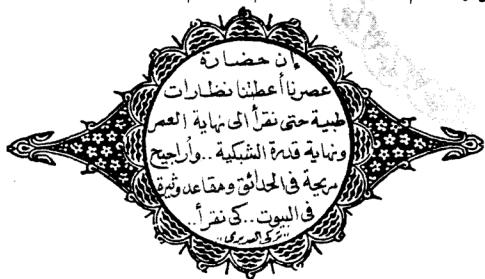 إن حضارة
عصرنا أعطتنا نظارات
طبية حتى نقرأ الى نهاية العمر
ونهاية قدرة الشبكية .. وأراجيح
مريحة في الحدائق ومقاعد وثيرة
في البيوت .. كى نقرأ ..
"تركى السديرى"